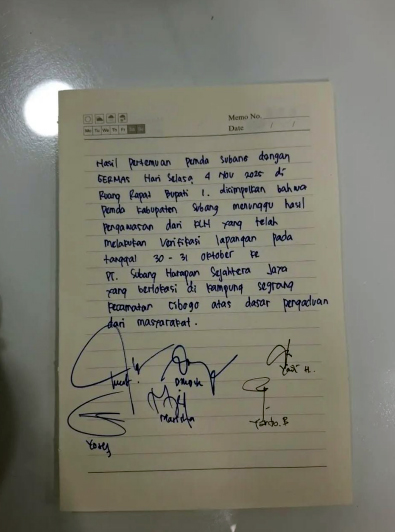 Memo No.
Date / /
Mo Tu We Th Fr Sa Su
Hasil Pertemuan Pemda Subang dengan
GERMAS Hari Selasa 4 Nov 2025 di
Ruang Rapat Bupati 1. disimpulkan bahwa
Pemda Kabupaten Subang menunggu hasil
Pengawasan dari KLH yang telah
melakukan Verifikasi lapangan pada
tanggal 30 - 31 Oktober ke
PT. Subang Harapan Sejahtera Jaya
yang berlokasi di kampung segrang
kecamatan Cibogo atas dasar pengaduan
dari masyarakat.
Yosep